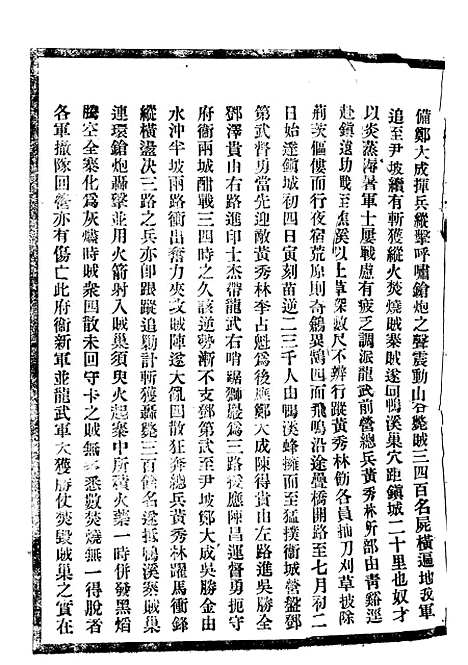 備鄭大成揮兵縱擊呼嘯鎗炮之聲震動山谷斃賊三四百名屍橫遍地我軍
追至尹坡續有斬獲縱火焚燒賊寨賊遂回鴨溪巢穴距鎮城二十里也奴才
以炎蒸溽暑軍士屢戰慮有疲乏調派龍武前營總兵黃秀林所部由青谿逕
赴鎮遠助戰至焦溪以上草深數尺不辨行蹤黃秀林飭各員抽刀刈草披除
荊茨傴僂而行夜宿荒原則奇鶬異鴞四面飛鳴沿途疊橋開路至七月初二
日始達鎮城初四日寅刻苗逆二三千人由鴨溪蜂擁而至猛撲衞城營盤鄧
第武督勇當先迎敵黃秀林李占魁為後應鄭大成陳得貴由左路進吳勝全
鄧澤貴由右路進印士杰帶龍武右哨踞獅巖為三路後應陳昌運督勇扼守
府衞兩城酣戰三四時之久該逆勢漸不支鄧第武至尹坡鄭大成吳勝全由
水沖半坡兩路衝出奮力夾攻賊陣遂大亂四散狂奔總兵黃秀林躍馬衝鋒
縱橫盪決三路之兵亦即跟蹤追勦計斬獲轟斃三百餘名遂抵鴨溪寨賊巢
連環鎗炮轟擊並用火箭射入賊巢須臾火起寨中所積火藥一時併發黑焰
騰空全寨化為灰燼時賊衆四散未回守卡之賊無多悉數焚燒無一得脫者
各軍撤隊回營亦有傷亡此府衞新軍並龍武大獲勝仗焚毀賊巢之實在